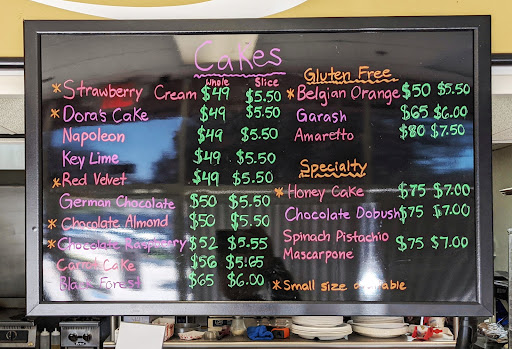 Cakes
Whole Slice
* Strawberry Cream $49 $5.50
* Dora's Cake $49 $5.50
Napoleon $49 $5.50
Key Lime $49 $5.50
* Red Velvet $49 $5.50
German Chocolate $50 $5.50
* Chocolate Almond $50 $5.50
* Chocolate Raspberry $52 $5.55
Carrot Cake $56 $5.65
Black Forest $65 $6.00
Gluten Free
* Belgian Orange $50 $5.50
Garash $65 $6.00
Amaretto $80 $7.50
Specialty
* Honey Cake $75 $7.00
Chocolate Dobush $75 $7.00
Spinach Pistachio
Mascarpone $75 $7.00
* Small size available